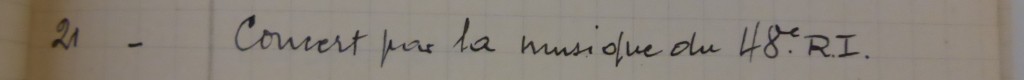 21 - Concert par la musique du 48e. R.I.